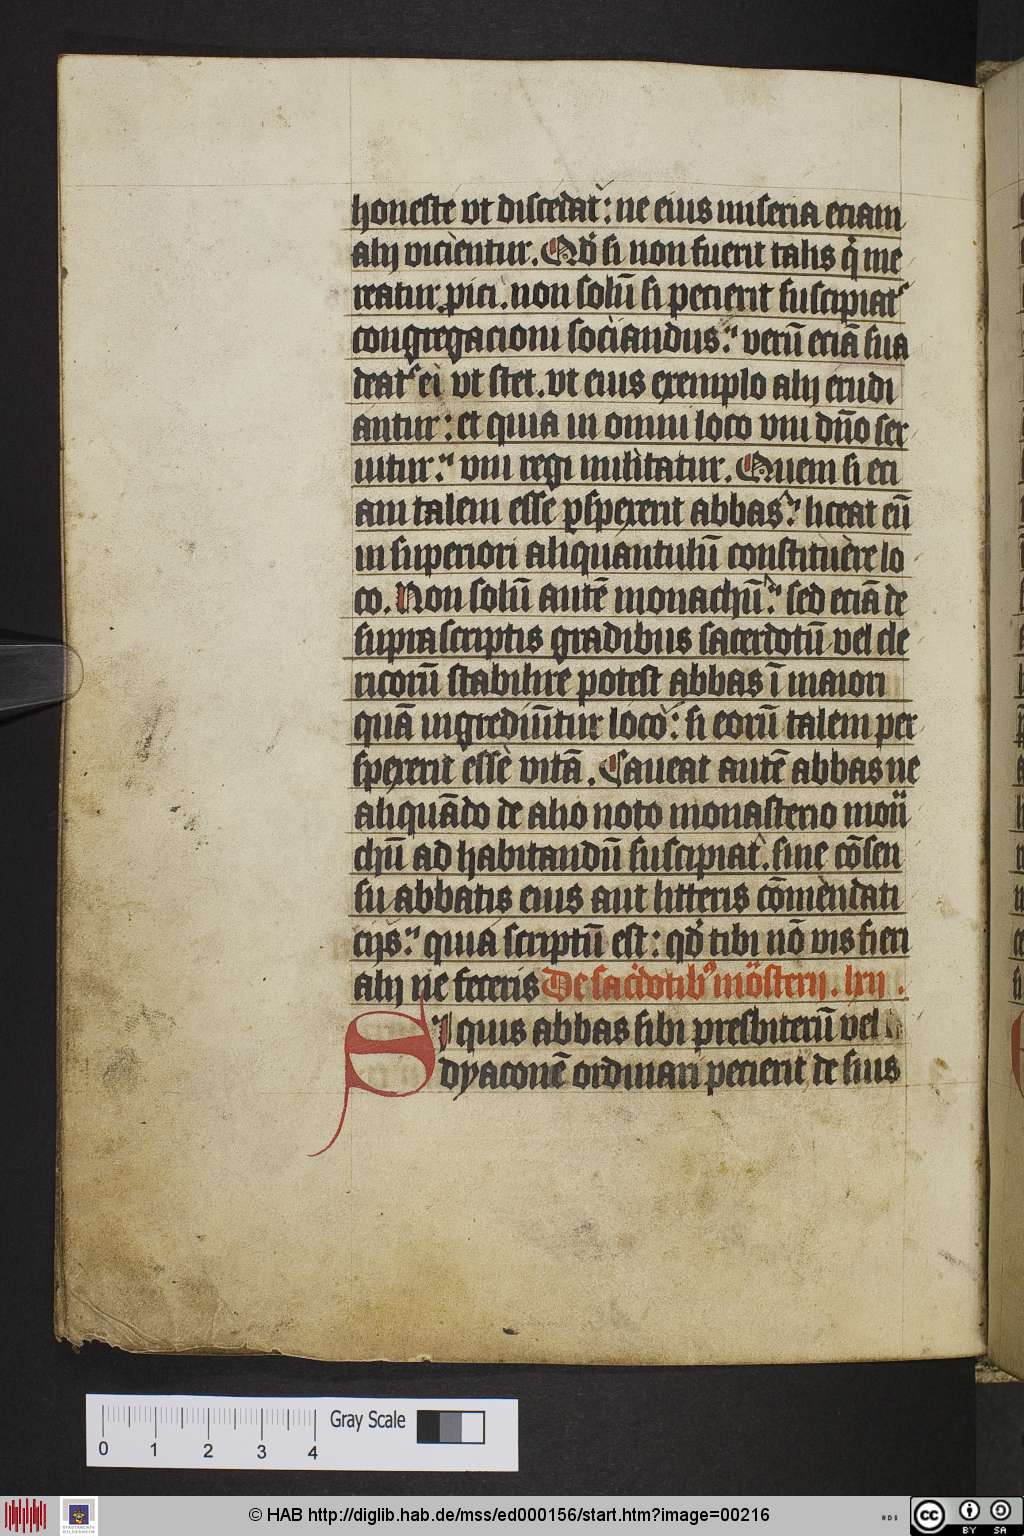 honeste vt discedat᷑: ne eius miseria eciam
alij vicientur. Qd̾ si non fuerit talis q̾ me
reatur ꝓici. non solū si pecierit suscipiat᷑
congregacioni sociandus: verū eciā sua
deat᷑ ei vt stet. vt eius exemplo alij erudi
antur: et quia in omni loco vni dn̄o ser
uitur: vni regi militatur. Quem si eci
am talem esse ꝑspexerit abbas: liceat eū
in superiori aliquantulū constituere lo
co. Non solū autē monachū: sed eciā de
suprascriptis gradibus sacerdotū vel cle
ricorū stabilire potest abbas ī maiori
quā ingrediūtur loco: si eorū talem per
spexerit esse vitā. Caueat autē abbas ne
aliquādo de alio noto monasterio mon̄
chū ad habitandū suscipiat. sine cōsen
su abbatis eius aut litteris cōmendati
cijs: quia scriptū est: qd̾ tibi nō vis fieri
alij ne feceris De sac̾dotib᷒ mōsterij. lxij.
SI quis abbas sibi presbiterū vel
dyaconē ordinari pecierit, de suis
0 1 2 3 4 Gray Scale
© HAB http://diglib.hab.de/mss/ed000156/start.htm?image=00216
cc BY SA